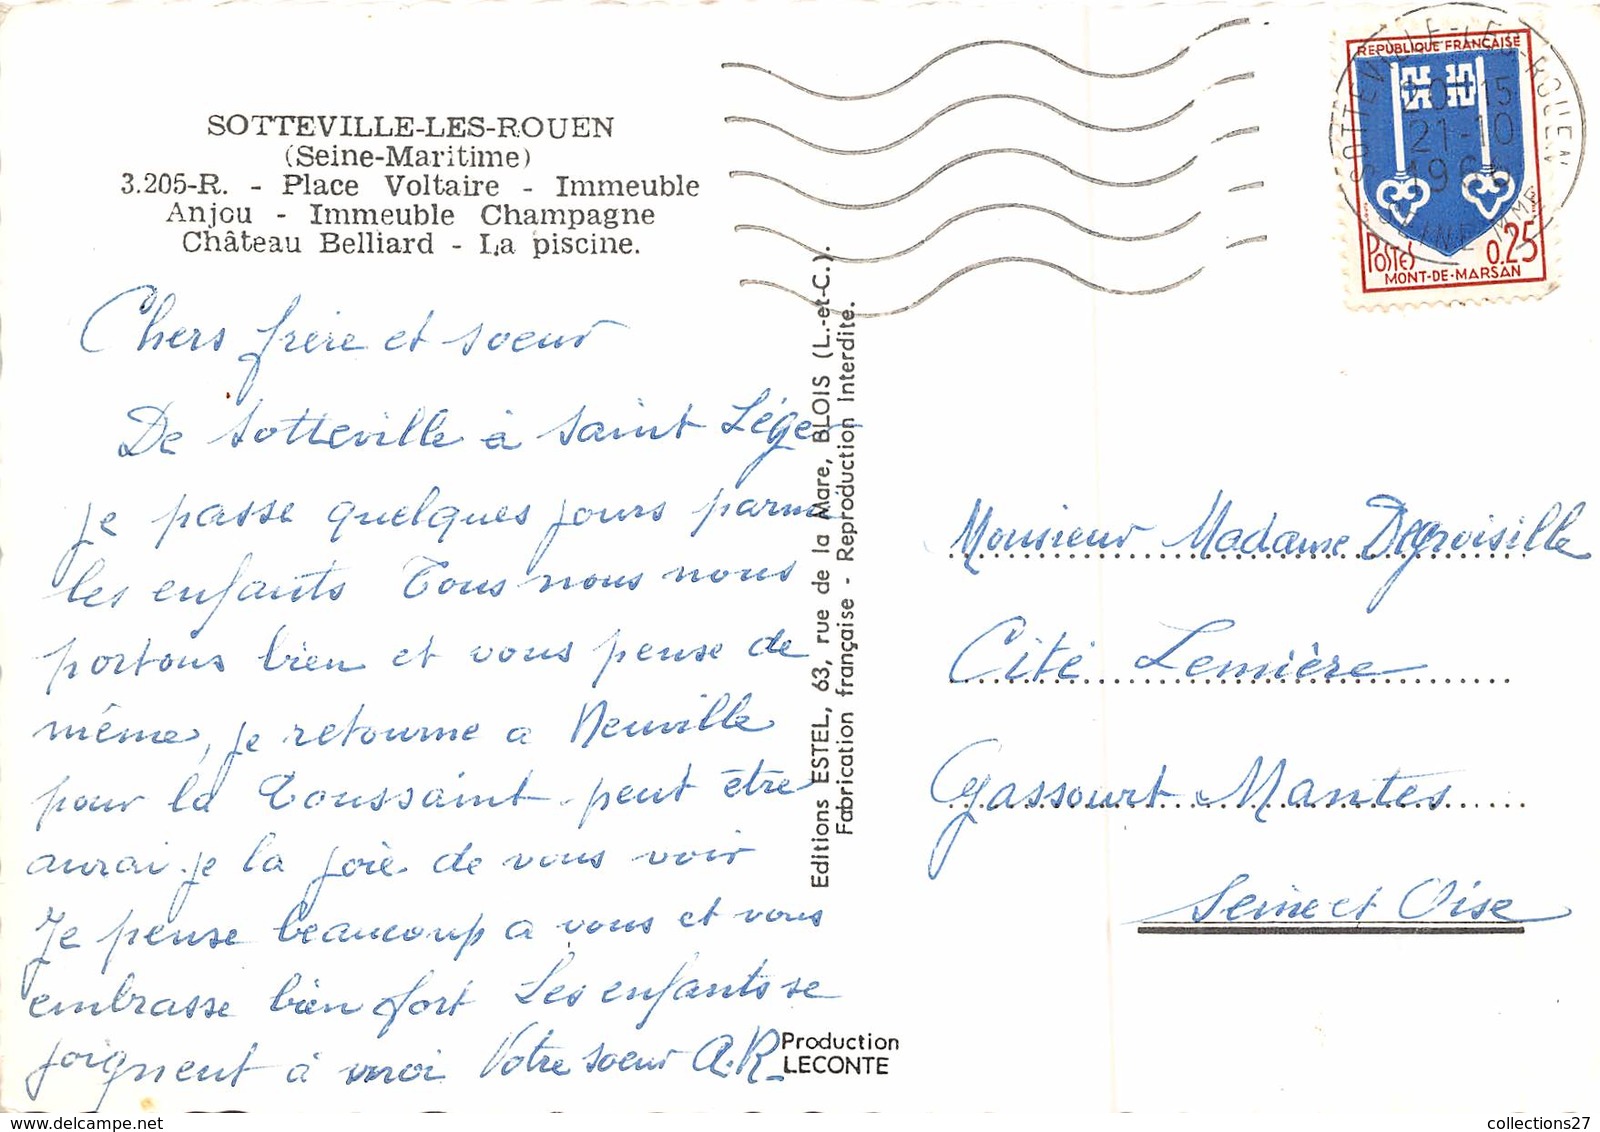 SOTTEVILLE-LES-ROUEN
(Seine-Maritime)
3.205-R. - Place Voltaire - Immeuble
Anjou - Immeuble Champagne
Château Belliard - La piscine.
Chers frère et soeur
De Sotteville à Saint Léger
je passe quelques jours parmi
les enfants Tous nous nous
portons bien et vous pense de
même, je retourne a Neuville
pour la Toussaint peut être
aurai je la joie de vous voir
Je pense beaucoup a vous et vous
embrasse bien fort Les enfants se
joignent à moi Votre soeur A.R
Editions ESTEL, 63, rue de la Mare, BLOIS (L.-et-C.).
Fabrication française - Reproduction Interdite.
Production
LECONTE
REPUBLIQUE FRANÇAISE
POSTES 0,25
MONT-DE-MARSAN
SOTTEVILLE-LES-ROUEN
21-10
SEINE MME
Monsieur Madame Degroisille
Cité Lemière
Gassourt Mantes
Seine et Oise
collections27